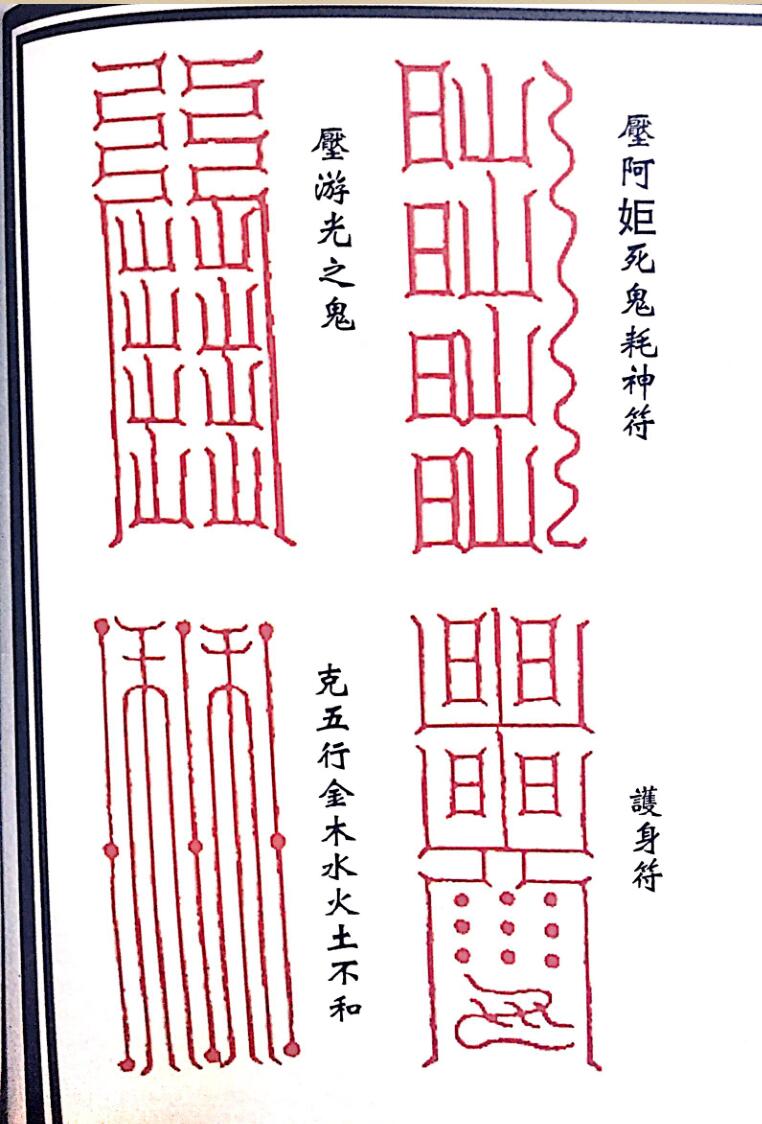 壓阿姖死鬼耗神符
護身符
壓游光之鬼
克五行金木水火土不和